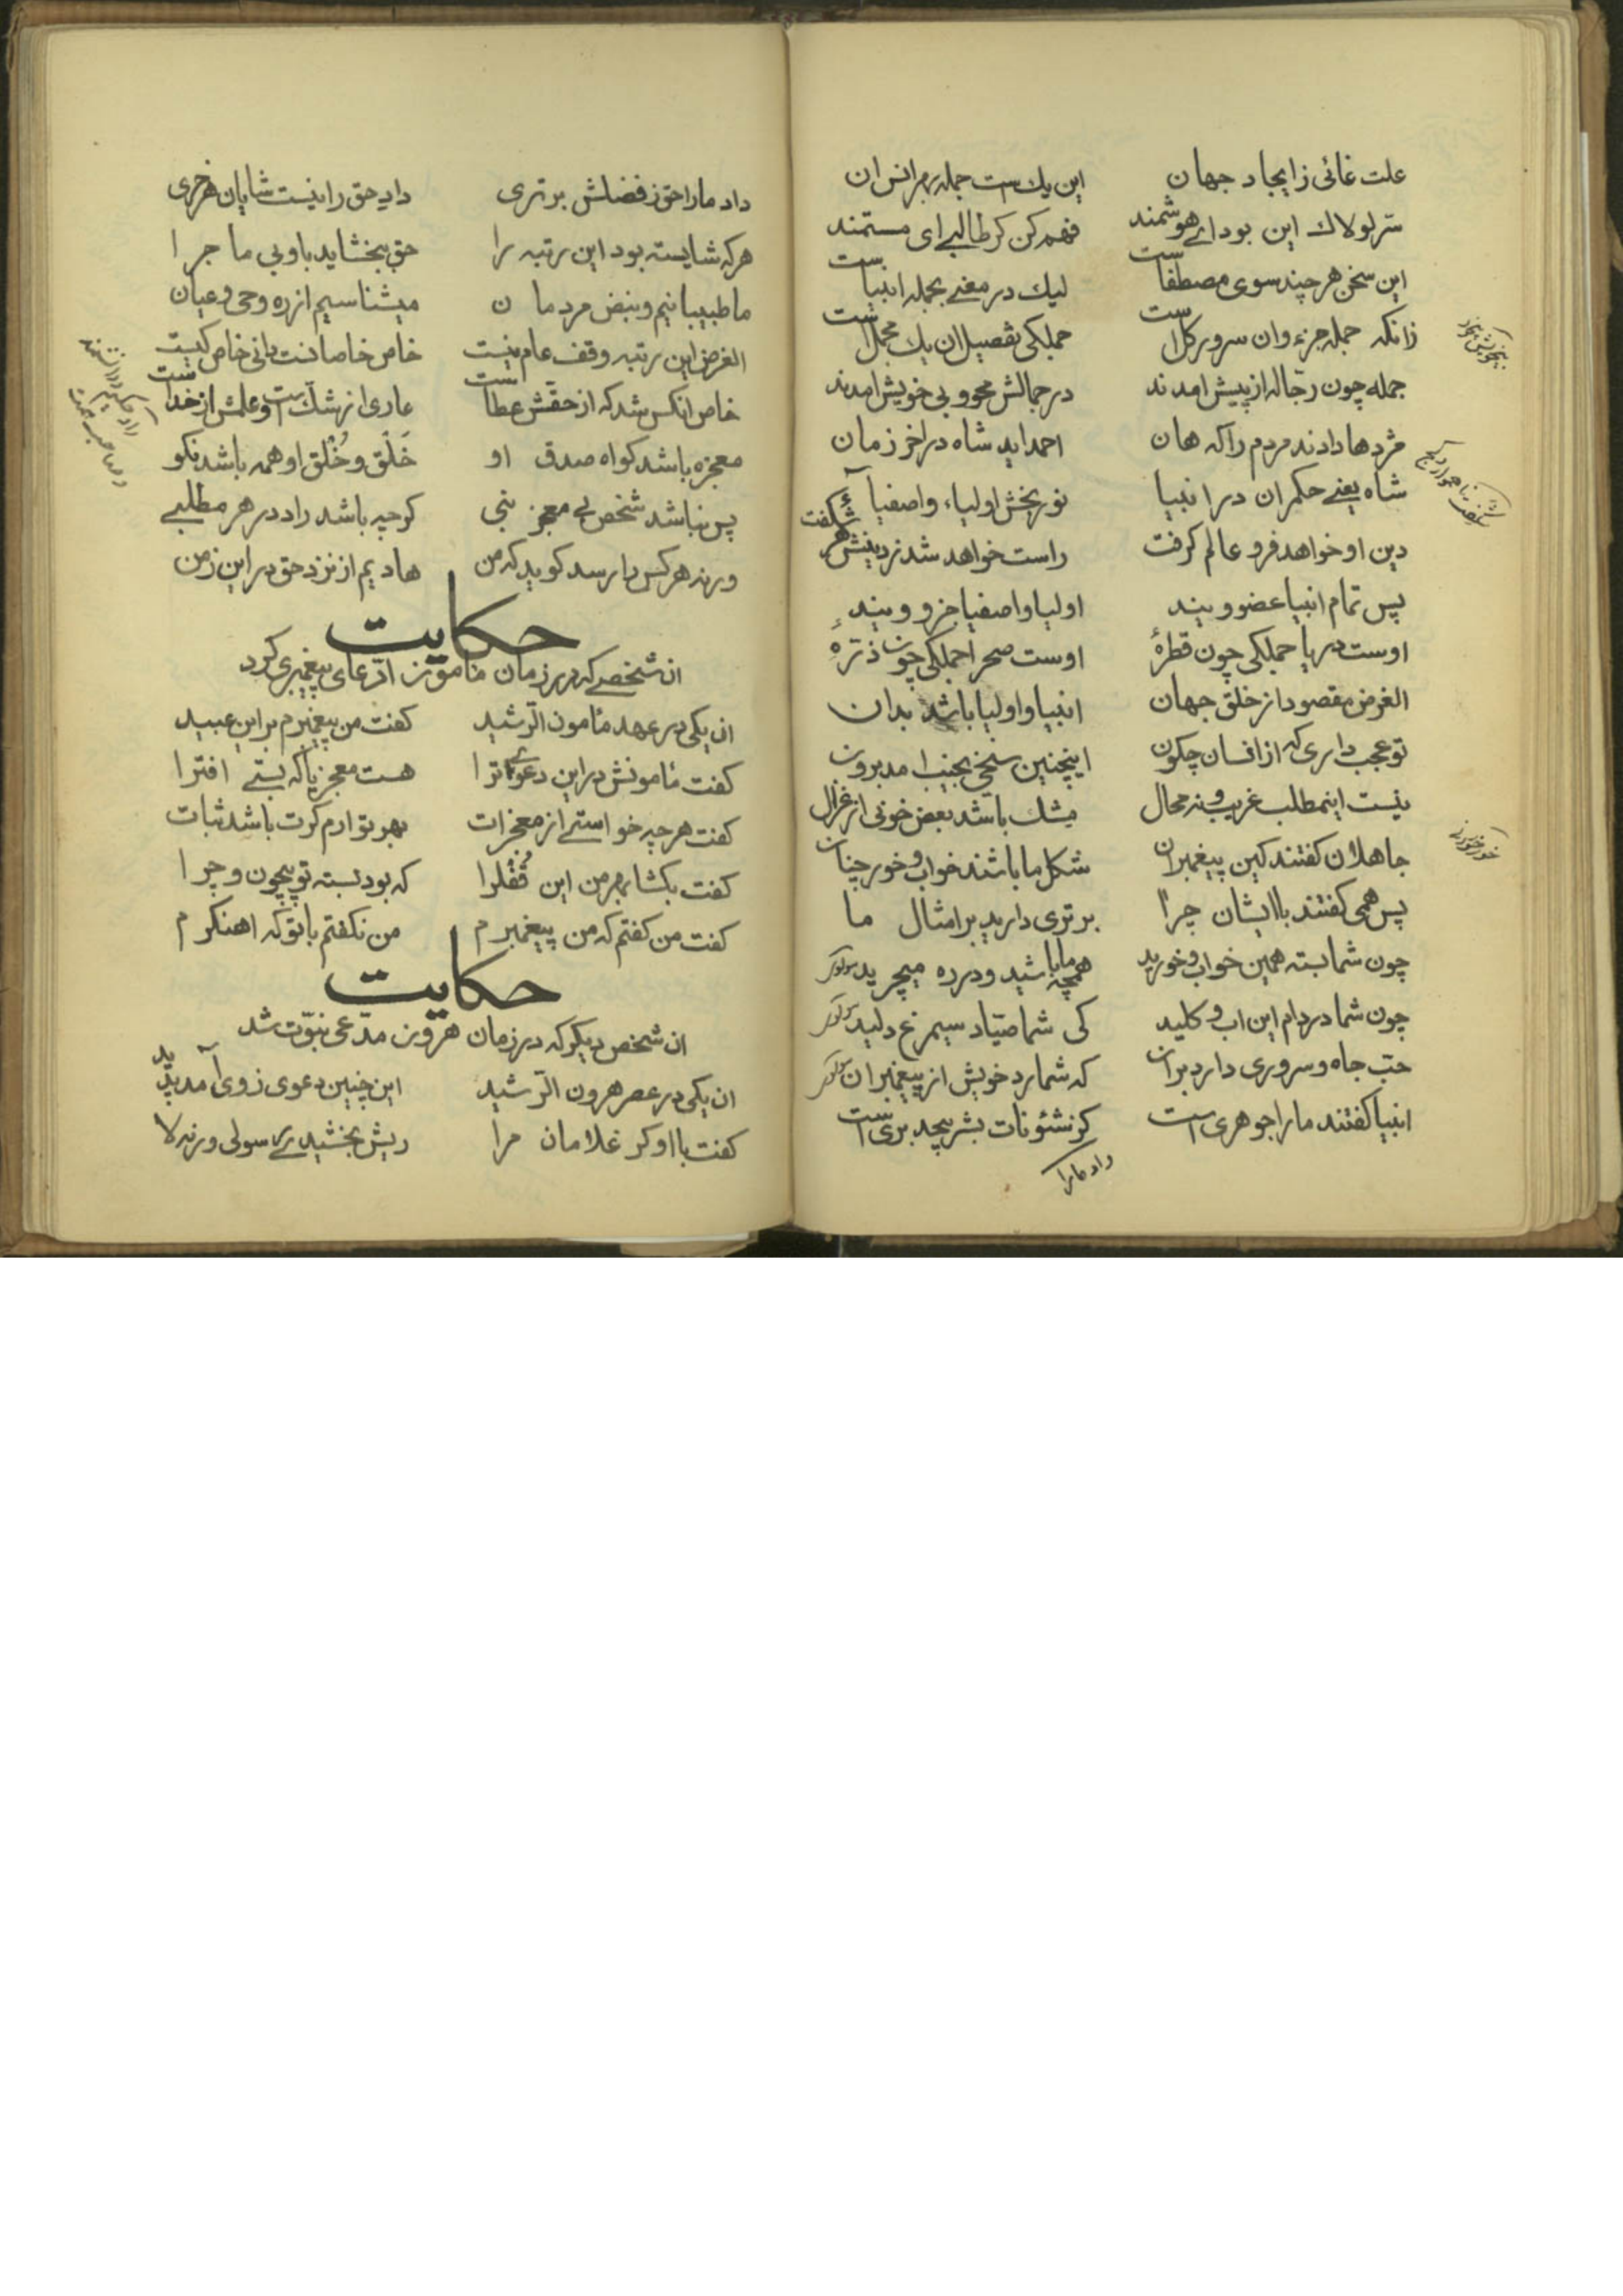 علت غائی ز ایجاد جهان این یك است جمله بهر انس ان
سّر لولاك این بود ای هوشمند فهم کن کر طالبی ای مستمند
این سخن هر چند سوی مصطفا ست لیك در معنی بجمله انبیا ست
زانکه جمله جزء وان سرور کل است جملکی تفصیل ان یك مجمل است
جمله چون رجّاله از پیش امدند در جمالش محو و بی خویش امدند
مژدها دادند مردم را که هان احمد اید شاه در اخر زمان
شاه یعنی حکمران در انبیا نور بخش اولیاء و اصفیا
دین او خواهد فرو عالم کرفت راست خواهد شد ز دینش هر شکفت
پس تمام انبیا عضو ویند اولیا و اصفیا جزو ویند
اوست دریا جملکی چون قطرۀ اوست صحرا جملکی چون ذرّۀ
الغرض مقصود از خلق جهان انبیا و اولیا باشد بدان
تو عجب داری که از افسان چکون اینچنین سنخی بجنب امد برون
نیست اینمطلب غریب و نه محال مشك باشد بعض خونی از غزال
جاهلان کفتند کین پیغمبران شکل ما باشند خواب و خور چنان
پس همی کفتند با ایشان چرا برتری دارید بر امثال ما
چون شما بسته همین خواب و خورید همچه ما باشید و در ره میچرید
چون شما در دام این اب و کلید کی شما صیّاد سیمرغ دلید
حبّ جاه و سروری دارد بران که شمارد خویش از پیغمبران
انبیا کفتند ما را جوهری است کز شئونات بشر بیحد بری است
داد ما را
داد ما را حق ز فضلش برتری دادِ حق را نیست شایان هر خری
هر که شایسته بود این رتبه را حق ببخشاید باو بی ما جرا
ما طبیبانیم و نبض مردمان میشناسیم از ره وحی و عیان
الغرض این رتبه وقف عام نیست خاص خاصانست دانی خاص کیست
خاص انکس شد که از حقش عطا ست عاری از شك است و علمش از خدا ست
معجزه باشد کواه صدق او خَلق و خُلق او همه باشد نکو
پس نباشد شخص بی معجز نبی کو چه باشد راد در هر مطلبی
ورنه هر کس را رسد کوید که من هادیم از نزد حق در این زمن
حکایت
ان شخصی که در زمان مامون ادّعای پیغمبری کرد
ان یکی در عهد مامون الرّشید کفت من پیغمبرم بر این عبید
کفت مامونش در این دعوی ترا هست معجز یا که بستی افترا
کفت هر چه خواستی از معجزات بهر تو ارم کرت باشد ثبات
کفت بکشا بهر من این قُفلرا که بود بسته تو بیچون و چرا
کفت من کفتم که من پیغمبرم من نکفتم با تو که اهنکرم
حکایت
ان شخص دیکر که در زمان هرون مدّعی نبوّت شد
ان یکی در عصر هرون الرّشید این چنین دعوی ز وی آمد پدید
کفت با او کر غلامان مرا ریش بخشیدی رسولی ورنه لا